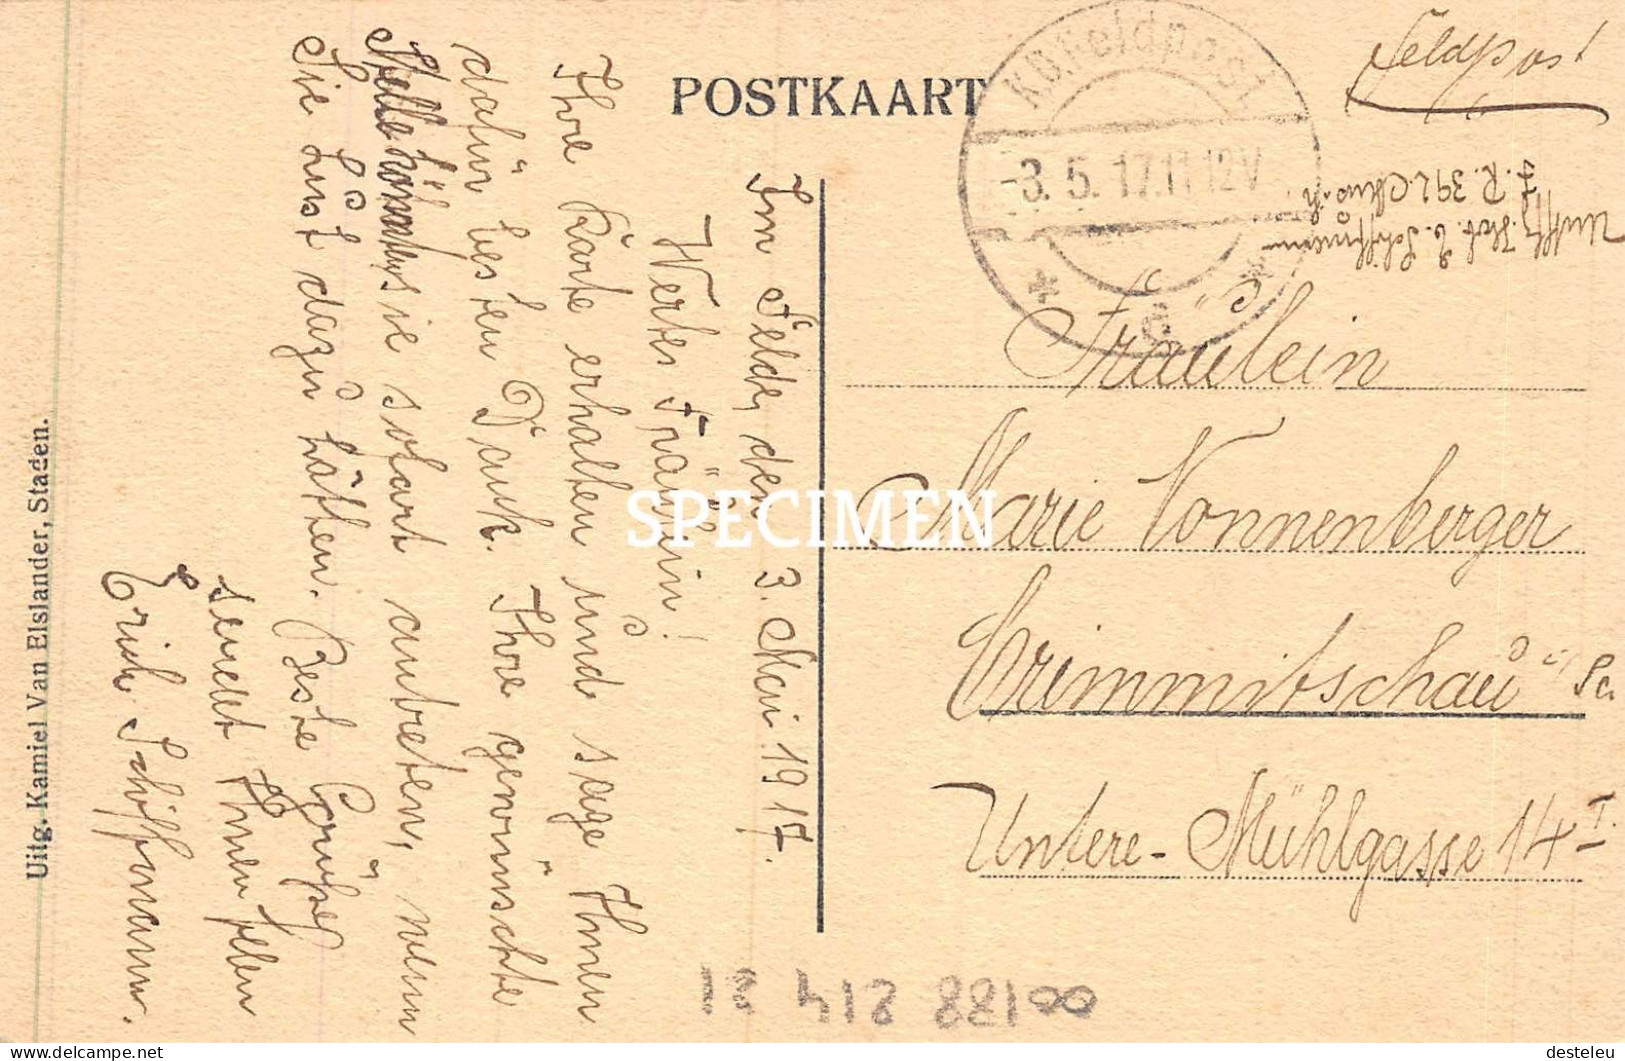 POSTKAART
Feldpost
K.D. Feldpost
-3.5.17.11-12V
* c *
J. R. 392.
Fräulein
Marie Vonnenberger
Crimmitschau i/Sa.
Untere-Mühlgasse 14 I.
Im Felde, den 3. Mai 1917.
Wertes Fräulein!
Ihre Karte erhalten und sage Ihnen
dafür besten Dank. Ihre gewünschte
Stelle könnten sie sofort antreten, wenn
Sie Lust dazu hätten. Beste Grüße
sendet Ihnen
Erich Schiffmann.
Uitg. Kamiel Van Elslander, Staden.
SPECIMEN
delcampe.net
desteleu